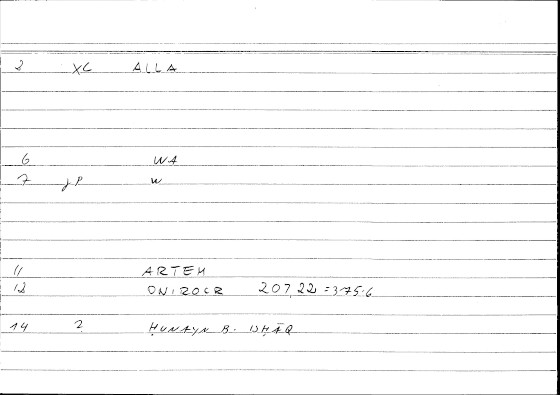 2 XC ALLA
6 WA
7 JP W
11 ARTEM
12 ONIROCR 207,22 = 375.6
14 2 ḤUNAYN B. ISḤĀQ